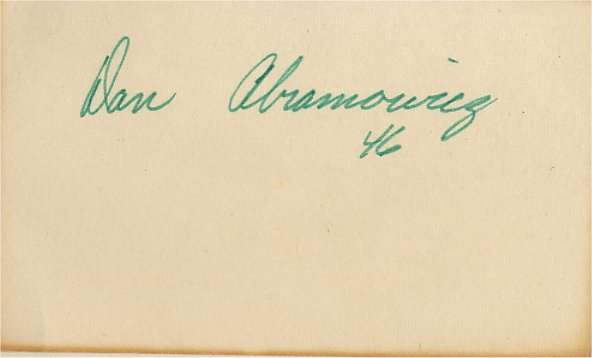 Dan Abramowicz
46